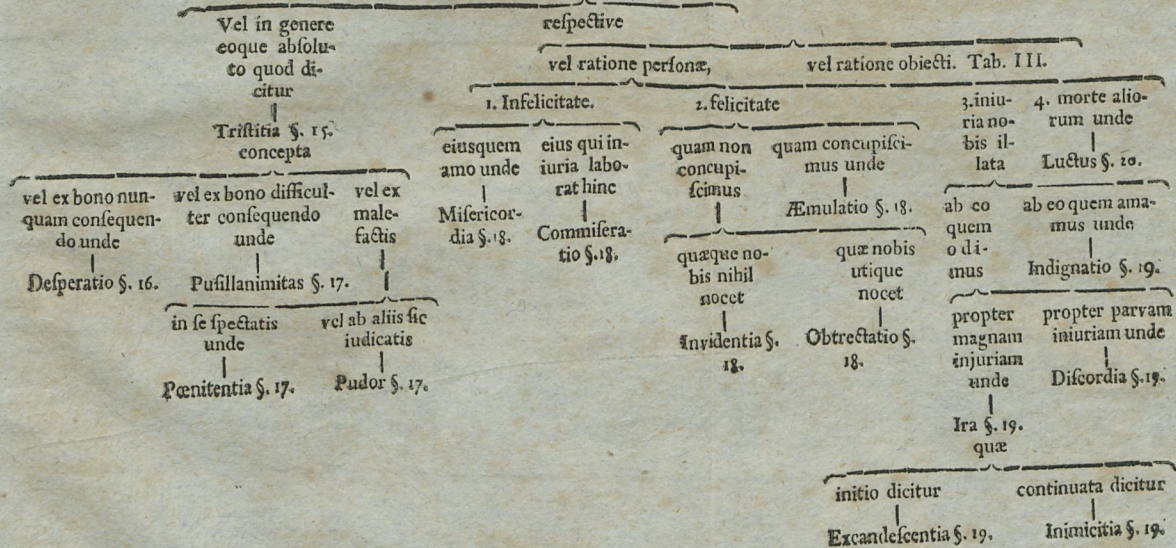 Vel in genere
eoque absolu-
to quod di-
citur
Tristitia §. 15.
concepta
vel ex bono nun-
quam consequen-
do unde
Desperatio §. 16.
vel ex bono difficul-
ter consequendo
unde
Pusillanimitas §. 17.
vel ex
male-
factis
in se spectatis
unde
Pœnitentia §. 17.
vel ab aliis sic
iudicatis
Pudor §. 17.
respective
vel ratione personæ,
vel ratione obiecti. Tab. III.
1. Infelicitate.
eiusquem
amo unde
Misericor-
dia §. 18.
eius qui in-
iuria labo-
rat hinc
Commisera-
tio §. 18.
2. felicitate
quam non
concupi-
scimus
quæque no-
bis nihil
nocet
Invidentia §.
18.
quæ nobis
utique
nocet
Obtrectatio §.
18.
quam concupisci-
mus unde
Æmulatio §. 18.
3. iniu-
ria no-
bis il-
lata
ab eo
quem
odi-
mus
propter
magnam
injuriam
unde
Ira §. 19.
quæ
initio dicitur
Excandescentia §. 19.
continuata dicitur
Inimicitia §. 19.
propter parvam
iniuriam unde
Discordia §. 19.
ab eo quem ama-
mus unde
Indignatio §. 19.
4. morte alio-
rum unde
Luctus §. 20.